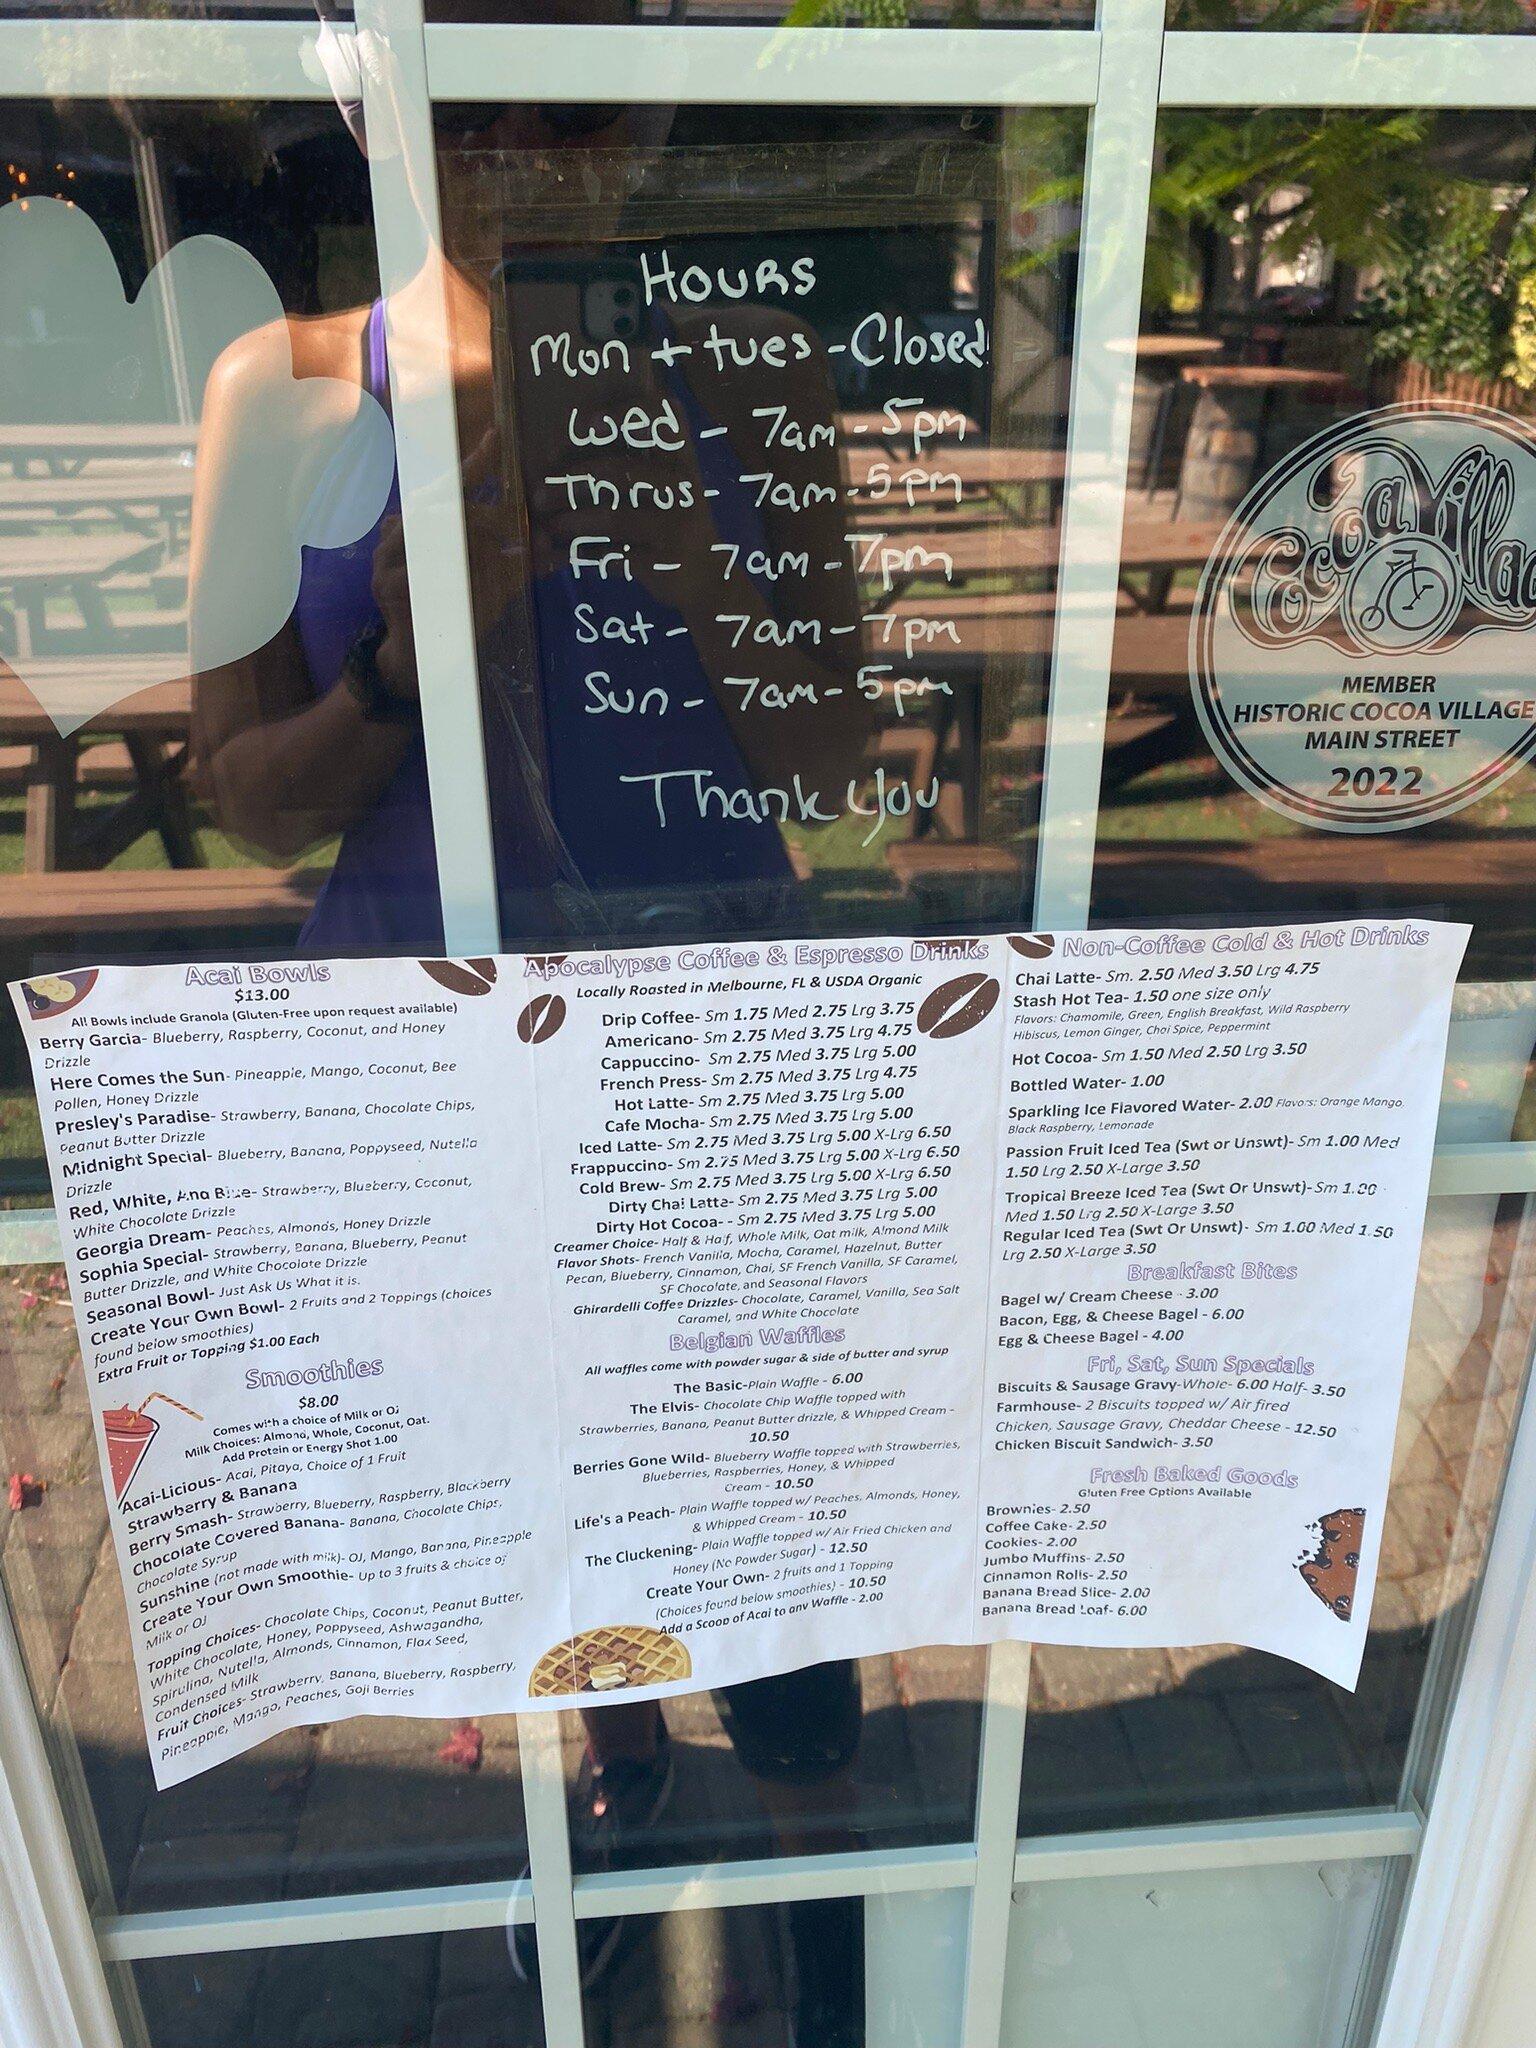 HOURS
Mon + tues - Closed!
Wed - 7am - 5pm
Thrus - 7am - 5pm
Fri - 7am - 7pm
Sat - 7am - 7pm
Sun - 7am - 5pm
Thank you
MEMBER
HISTORIC COCOA VILLAGE
MAIN STREET
2022
Acai Bowls
$13.00
All Bowls include Granola (Gluten-Free upon request available)
Berry Garcia- Blueberry, Raspberry, Coconut, and Honey
Drizzle
Here Comes the Sun- Pineapple, Mango, Coconut, Bee
Pollen, Honey Drizzle
Presley's Paradise- Strawberry, Banana, Chocolate Chips,
Peanut Butter Drizzle
Midnight Special- Blueberry, Banana, Poppyseed, Nutella
Drizzle
Red, White, And Blue- Strawberry, Blueberry, Coconut,
White Chocolate Drizzle
Georgia Dream- Peaches, Almonds, Honey Drizzle
Sophia Special- Strawberry, Banana, Blueberry, Peanut
Butter Drizzle, and White Chocolate Drizzle
Seasonal Bowl- Just Ask Us What it is.
Create Your Own Bowl- 2 Fruits and 2 Toppings (choices
found below smoothies)
Extra Fruit or Topping $1.00 Each
Smoothies
$8.00
Comes with a choice of Milk or OJ
Milk Choices: Almond, Whole, Coconut, Oat.
Add Protein or Energy Shot 1.00
Acai-Licious- Acai, Pitaya, Choice of 1 Fruit
Strawberry & Banana
Berry Smash- Strawberry, Blueberry, Raspberry, Blackberry
Chocolate Covered Banana- Banana, Chocolate Chips,
Chocolate Syrup
Sunshine (not made with milk)- OJ, Mango, Banana, Pineapple
Create Your Own Smoothie- Up to 3 fruits & choice of
Milk or OJ
Topping Choices- Chocolate Chips, Coconut, Peanut Butter,
White Chocolate, Honey, Poppyseed, Ashwagandha,
Spirulina, Nutella, Almonds, Cinnamon, Flax Seed,
Condensed Milk
Fruit Choices- Strawberry, Banana, Blueberry, Raspberry,
Pineapple, Mango, Peaches, Goji Berries
Apocalypse Coffee & Espresso Drinks
Locally Roasted in Melbourne, FL & USDA Organic
Drip Coffee- Sm 1.75 Med 2.75 Lrg 3.75
Americano- Sm 2.75 Med 3.75 Lrg 4.75
Cappuccino- Sm 2.75 Med 3.75 Lrg 5.00
French Press- Sm 2.75 Med 3.75 Lrg 4.75
Hot Latte- Sm 2.75 Med 3.75 Lrg 5.00
Cafe Mocha- Sm 2.75 Med 3.75 Lrg 5.00
Iced Latte- Sm 2.75 Med 3.75 Lrg 5.00 X-Lrg 6.50
Frappuccino- Sm 2.75 Med 3.75 Lrg 5.00 X-Lrg 6.50
Cold Brew- Sm 2.75 Med 3.75 Lrg 5.00 X-Lrg 6.50
Dirty Chai Latte- Sm 2.75 Med 3.75 Lrg 5.00
Dirty Hot Cocoa- - Sm 2.75 Med 3.75 Lrg 5.00
Creamer Choice- Half & Half, Whole Milk, Oat milk, Almond Milk
Flavor Shots- French Vanilla, Mocha, Caramel, Hazelnut, Butter
Pecan, Blueberry, Cinnamon, Chai, SF French Vanilla, SF Caramel,
SF Chocolate, and Seasonal Flavors
Ghirardelli Coffee Drizzles- Chocolate, Caramel, Vanilla, Sea Salt
Caramel, and White Chocolate
Belgian Waffles
All waffles come with powder sugar & side of butter and syrup
The Basic-Plain Waffle - 6.00
The Elvis- Chocolate Chip Waffle topped with
Strawberries, Banana, Peanut Butter drizzle, & Whipped Cream -
10.50
Berries Gone Wild- Blueberry Waffle topped with Strawberries,
Blueberries, Raspberries, Honey, & Whipped
Cream - 10.50
Life's a Peach- Plain Waffle topped w/ Peaches, Almonds, Honey,
& Whipped Cream - 10.50
The Cluckening- Plain Waffle topped w/ Air Fried Chicken and
Honey (No Powder Sugar) - 12.50
Create Your Own- 2 fruits and 1 Topping
(Choices found below smoothies) - 10.50
Add a Scoop of Acai to any Waffle - 2.00
Non-Coffee Cold & Hot Drinks
Chai Latte- Sm. 2.50 Med 3.50 Lrg 4.75
Stash Hot Tea- 1.50 one size only
Flavors: Chamomile, Green, English Breakfast, Wild Raspberry
Hibiscus, Lemon Ginger, Chai Spice, Peppermint
Hot Cocoa- Sm 1.50 Med 2.50 Lrg 3.50
Bottled Water- 1.00
Sparkling Ice Flavored Water- 2.00 Flavors: Orange Mango,
Black Raspberry, Lemonade
Passion Fruit Iced Tea (Swt or Unswt)- Sm 1.00 Med
1.50 Lrg 2.50 X-Large 3.50
Tropical Breeze Iced Tea (Swt Or Unswt)- Sm 1.00
Med 1.50 Lrg 2.50 X-Large 3.50
Regular Iced Tea (Swt Or Unswt)- Sm 1.00 Med 1.50
Lrg 2.50 X-Large 3.50
Breakfast Bites
Bagel w/ Cream Cheese - 3.00
Bacon, Egg, & Cheese Bagel - 6.00
Egg & Cheese Bagel - 4.00
Fri, Sat, Sun Specials
Biscuits & Sausage Gravy-Whole- 6.00 Half- 3.50
Farmhouse- 2 Biscuits topped w/ Air fired
Chicken, Sausage Gravy, Cheddar Cheese - 12.50
Chicken Biscuit Sandwich- 3.50
Fresh Baked Goods
Gluten Free Options Available
Brownies- 2.50
Coffee Cake- 2.50
Cookies- 2.00
Jumbo Muffins- 2.50
Cinnamon Rolls- 2.50
Banana Bread Slice- 2.00
Banana Bread Loaf- 6.00